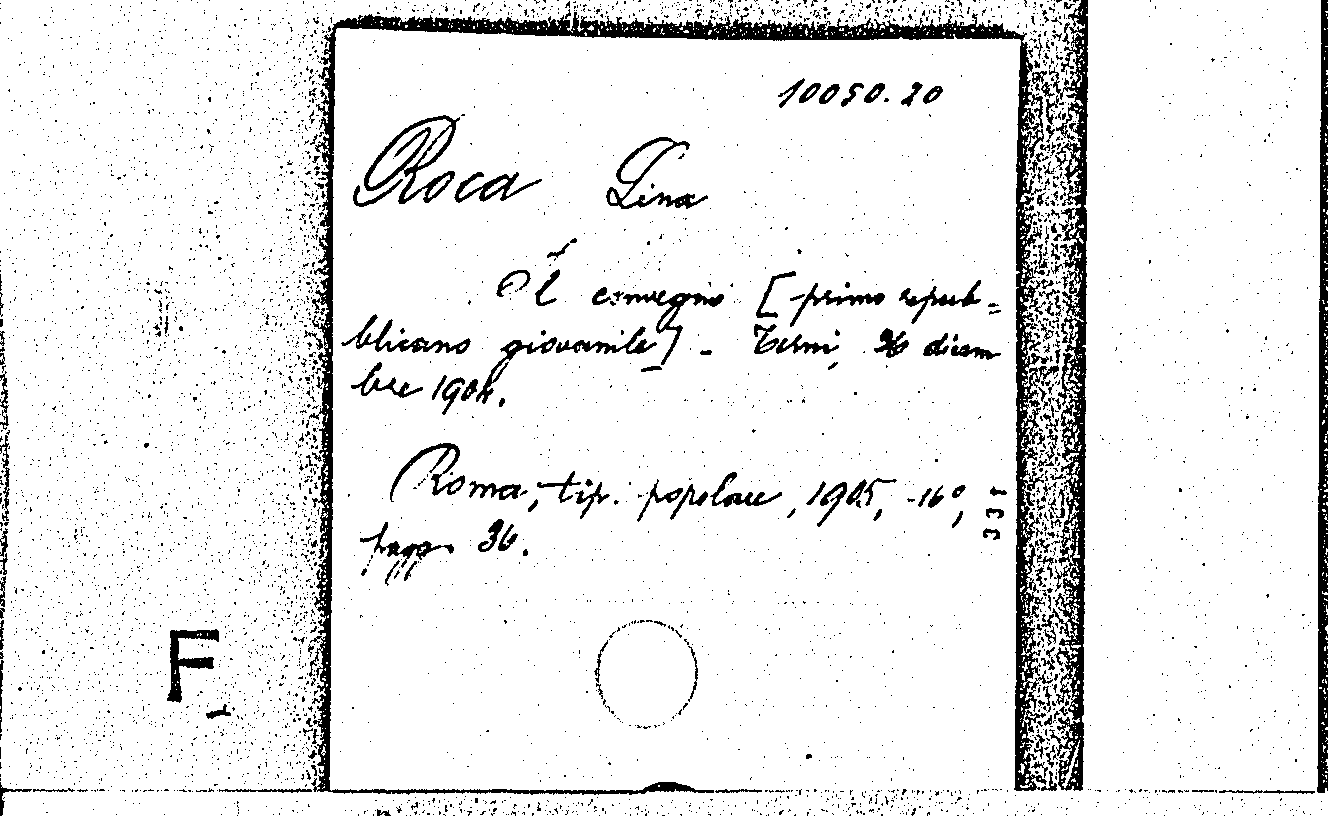 10050.20
Roca Lina
Il convegno [primo repub=
blicano giovanile] - Terni, 26 dicem
bre 1904.
Roma, tip. popolare, 1905, -16°,
pagg. 36.
331
F